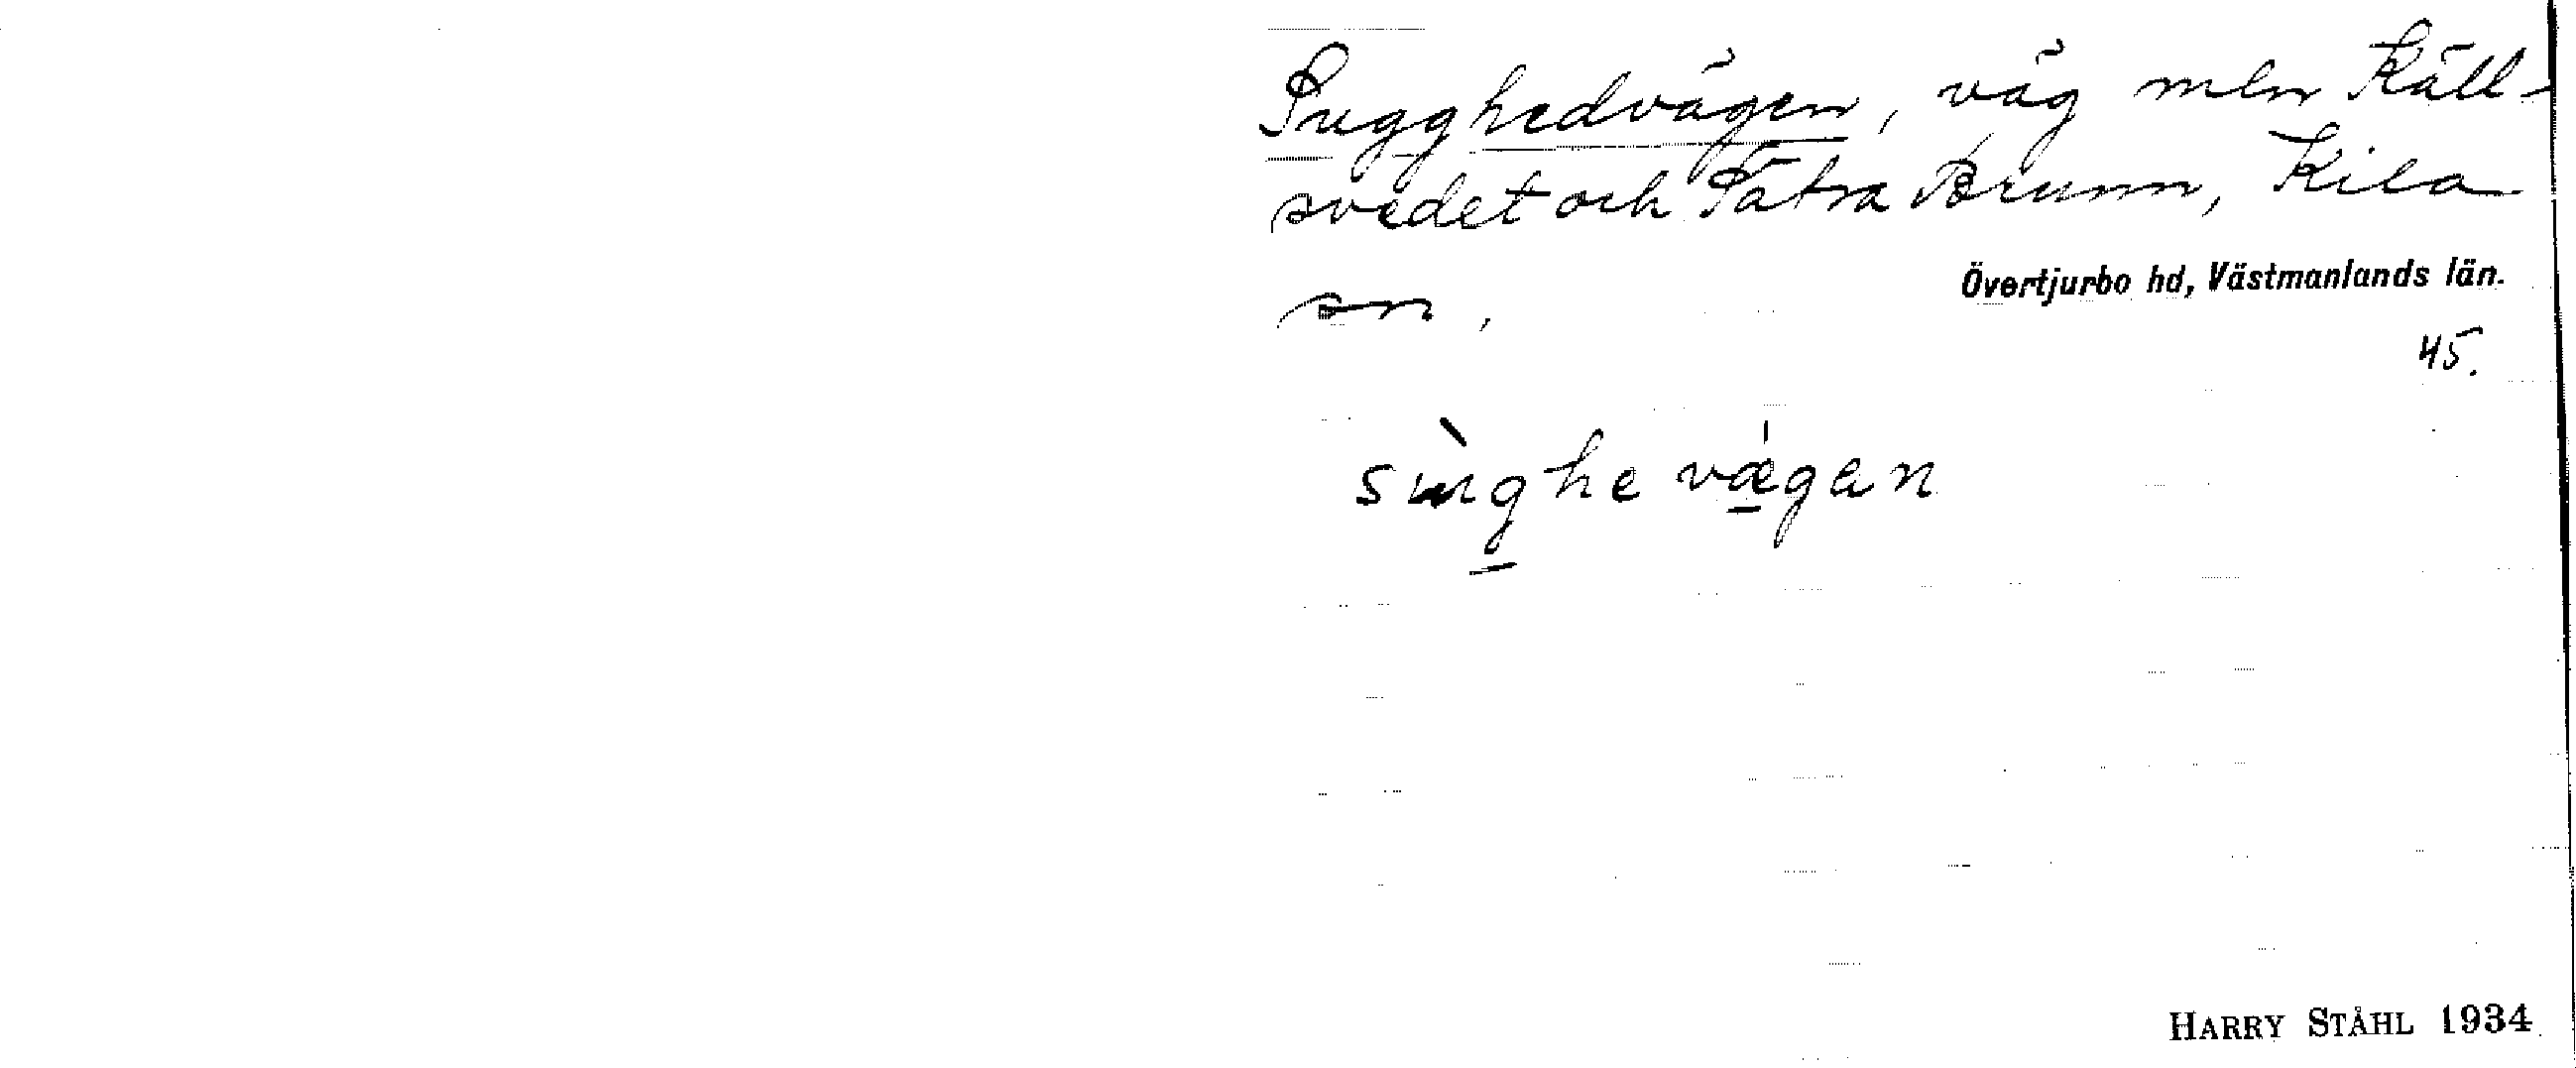 Sugghedvägen, väg mln Käll-
svedet och Sätra Brunn, Kila
sn,
Övertjurbo hd, Västmanlands län.
45.
HARRY STÅHL 1934